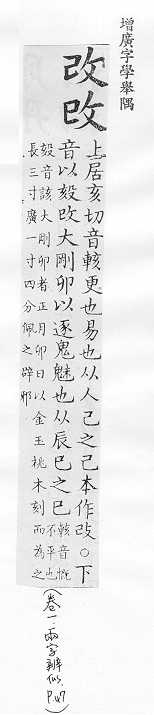 增廣字學舉隅
改攺
上居亥切音輆更也易也从人己之己本作改○下
音以㱾攺大剛卯以逐鬼魅也从辰巳之巳
輆音慨
不平也
㱾音該大剛卯者正月卯日以金玉桃木刻而為之
長三寸廣一寸四分佩之辟邪
(卷一.兩字辨似. P.47)